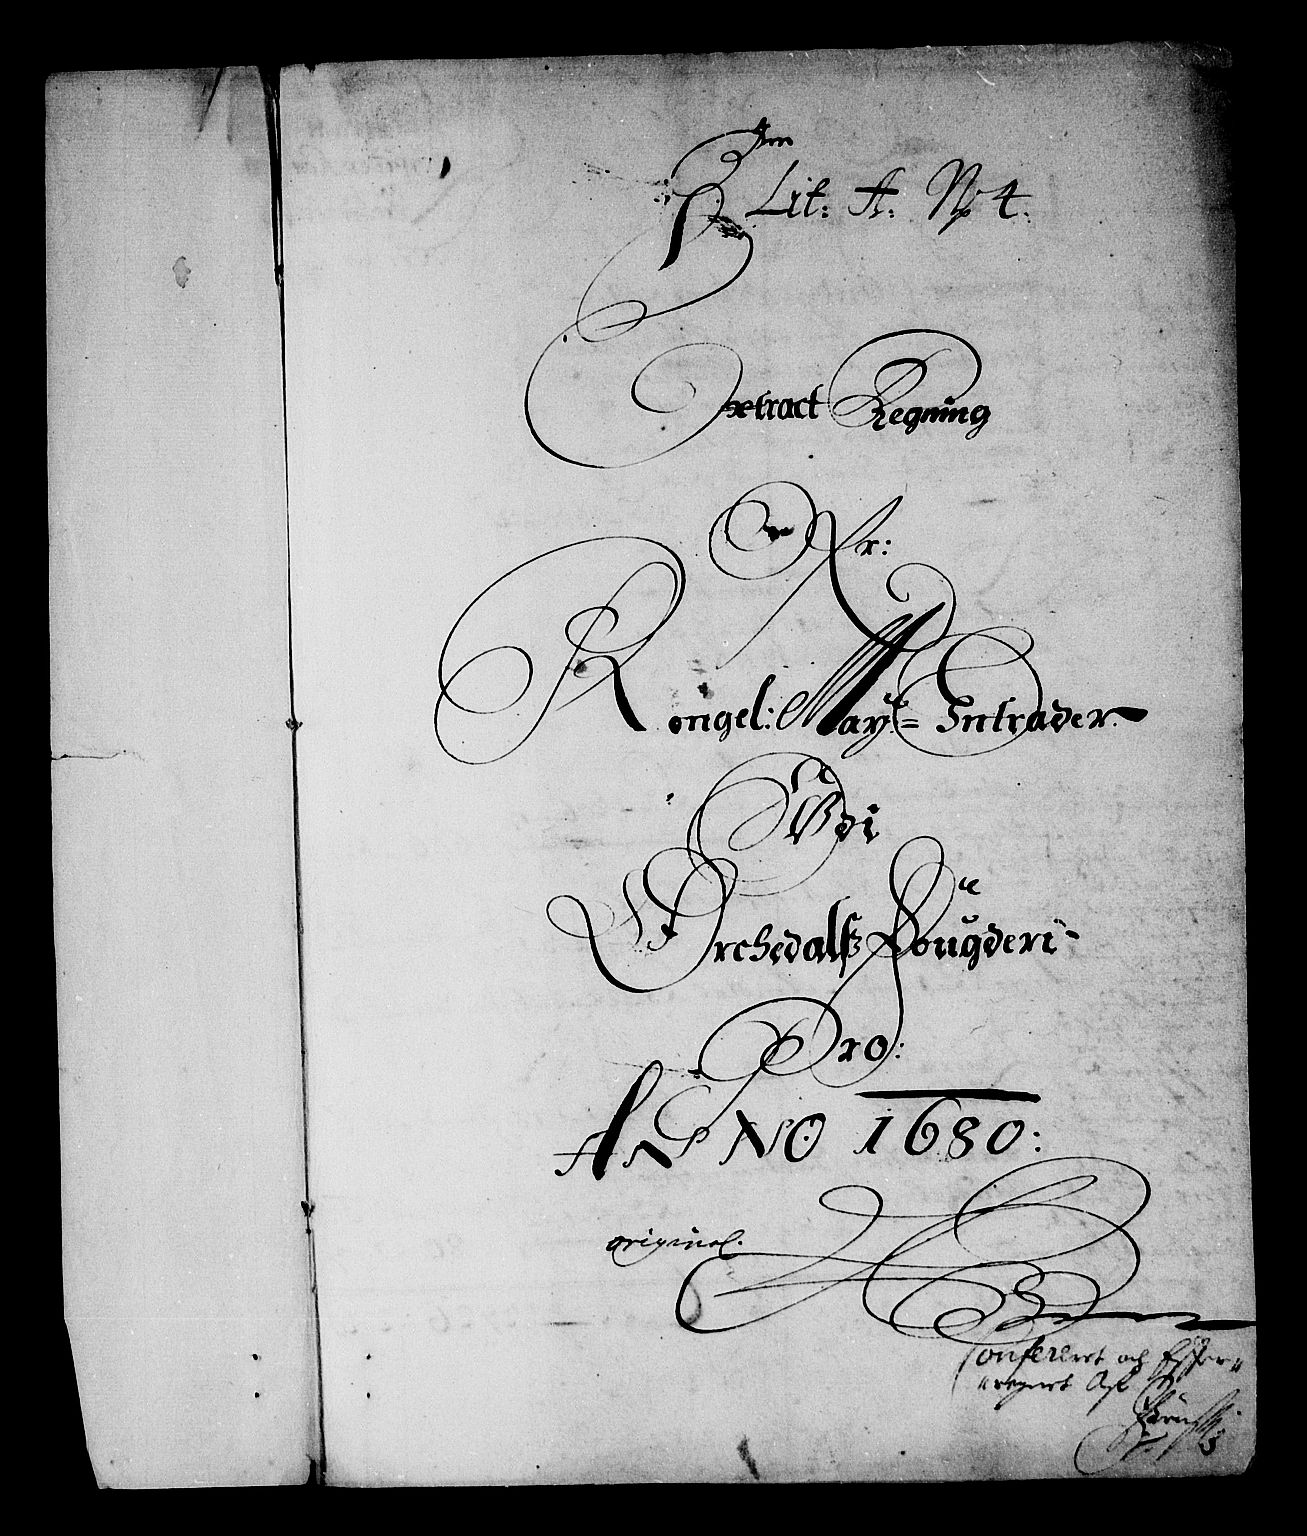 Lit: A. No 4.
Extract Regning
Ofr:
Kongel: Mayts= Intrader
Udi
Orchedalss Fougderi
Pro:
ANNO 1680:
original.
Confereret och Efter=
=regnet Af